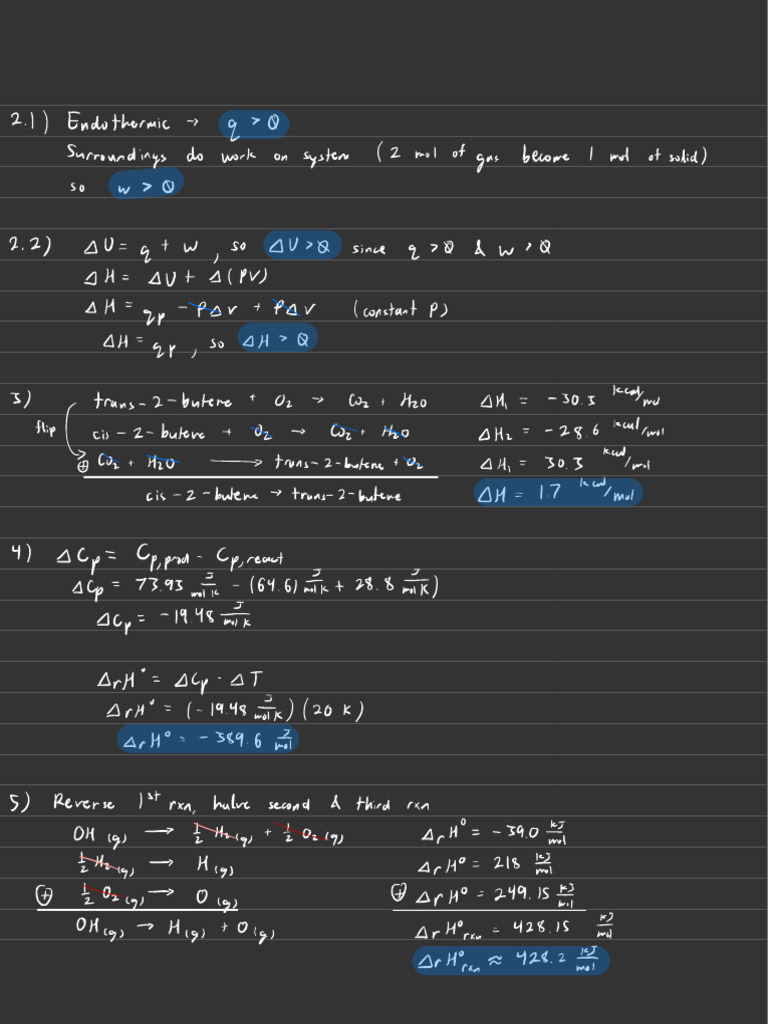 2.1) Endothermic → q > 0
Surroundings do work on system (2 mol of gas become 1 mol of solid)
so w > 0
2.2) ΔU = q + w, so ΔU > 0 since q > 0 & w > 0
ΔH = ΔU + Δ(PV)
ΔH = qp - PΔV + PΔV (constant P)
ΔH = qp, so ΔH > 0
3) trans-2-butene + O2 → CO2 + H2O ΔH1 = -30.3 kcal/mol
flip cis-2-butene + O2 → CO2 + H2O ΔH2 = -28.6 kcal/mol
⊕ CO2 + H2O → trans-2-butene + O2 ΔH1 = 30.3 kcal/mol
cis-2-butene → trans-2-butene ΔH = 1.7 kcal/mol
4) ΔCp = Cp,prod - Cp,react
ΔCp = 73.93 J/mol K - (64.61 J/mol K + 28.8 J/mol K)
ΔCp = -19.48 J/mol K
ΔrH° = ΔCp · ΔT
ΔrH° = (-19.48 J/mol K)(20 K)
ΔrH° = -389.6 J/mol
5) Reverse 1st rxn, halve second & third rxn
OH(g) → 1/2 H2(g) + 1/2 O2(g) ΔrH° = -39.0 kJ/mol
1/2 H2(g) → H(g) ΔrH° = 218 kJ/mol
⊕ 1/2 O2(g) → O(g) ⊕ ΔrH° = 249.15 kJ/mol
OH(g) → H(g) + O(g) ΔrH°rxn = 428.15 kJ/mol
ΔrH°rxn ≈ 428.2 kJ/mol